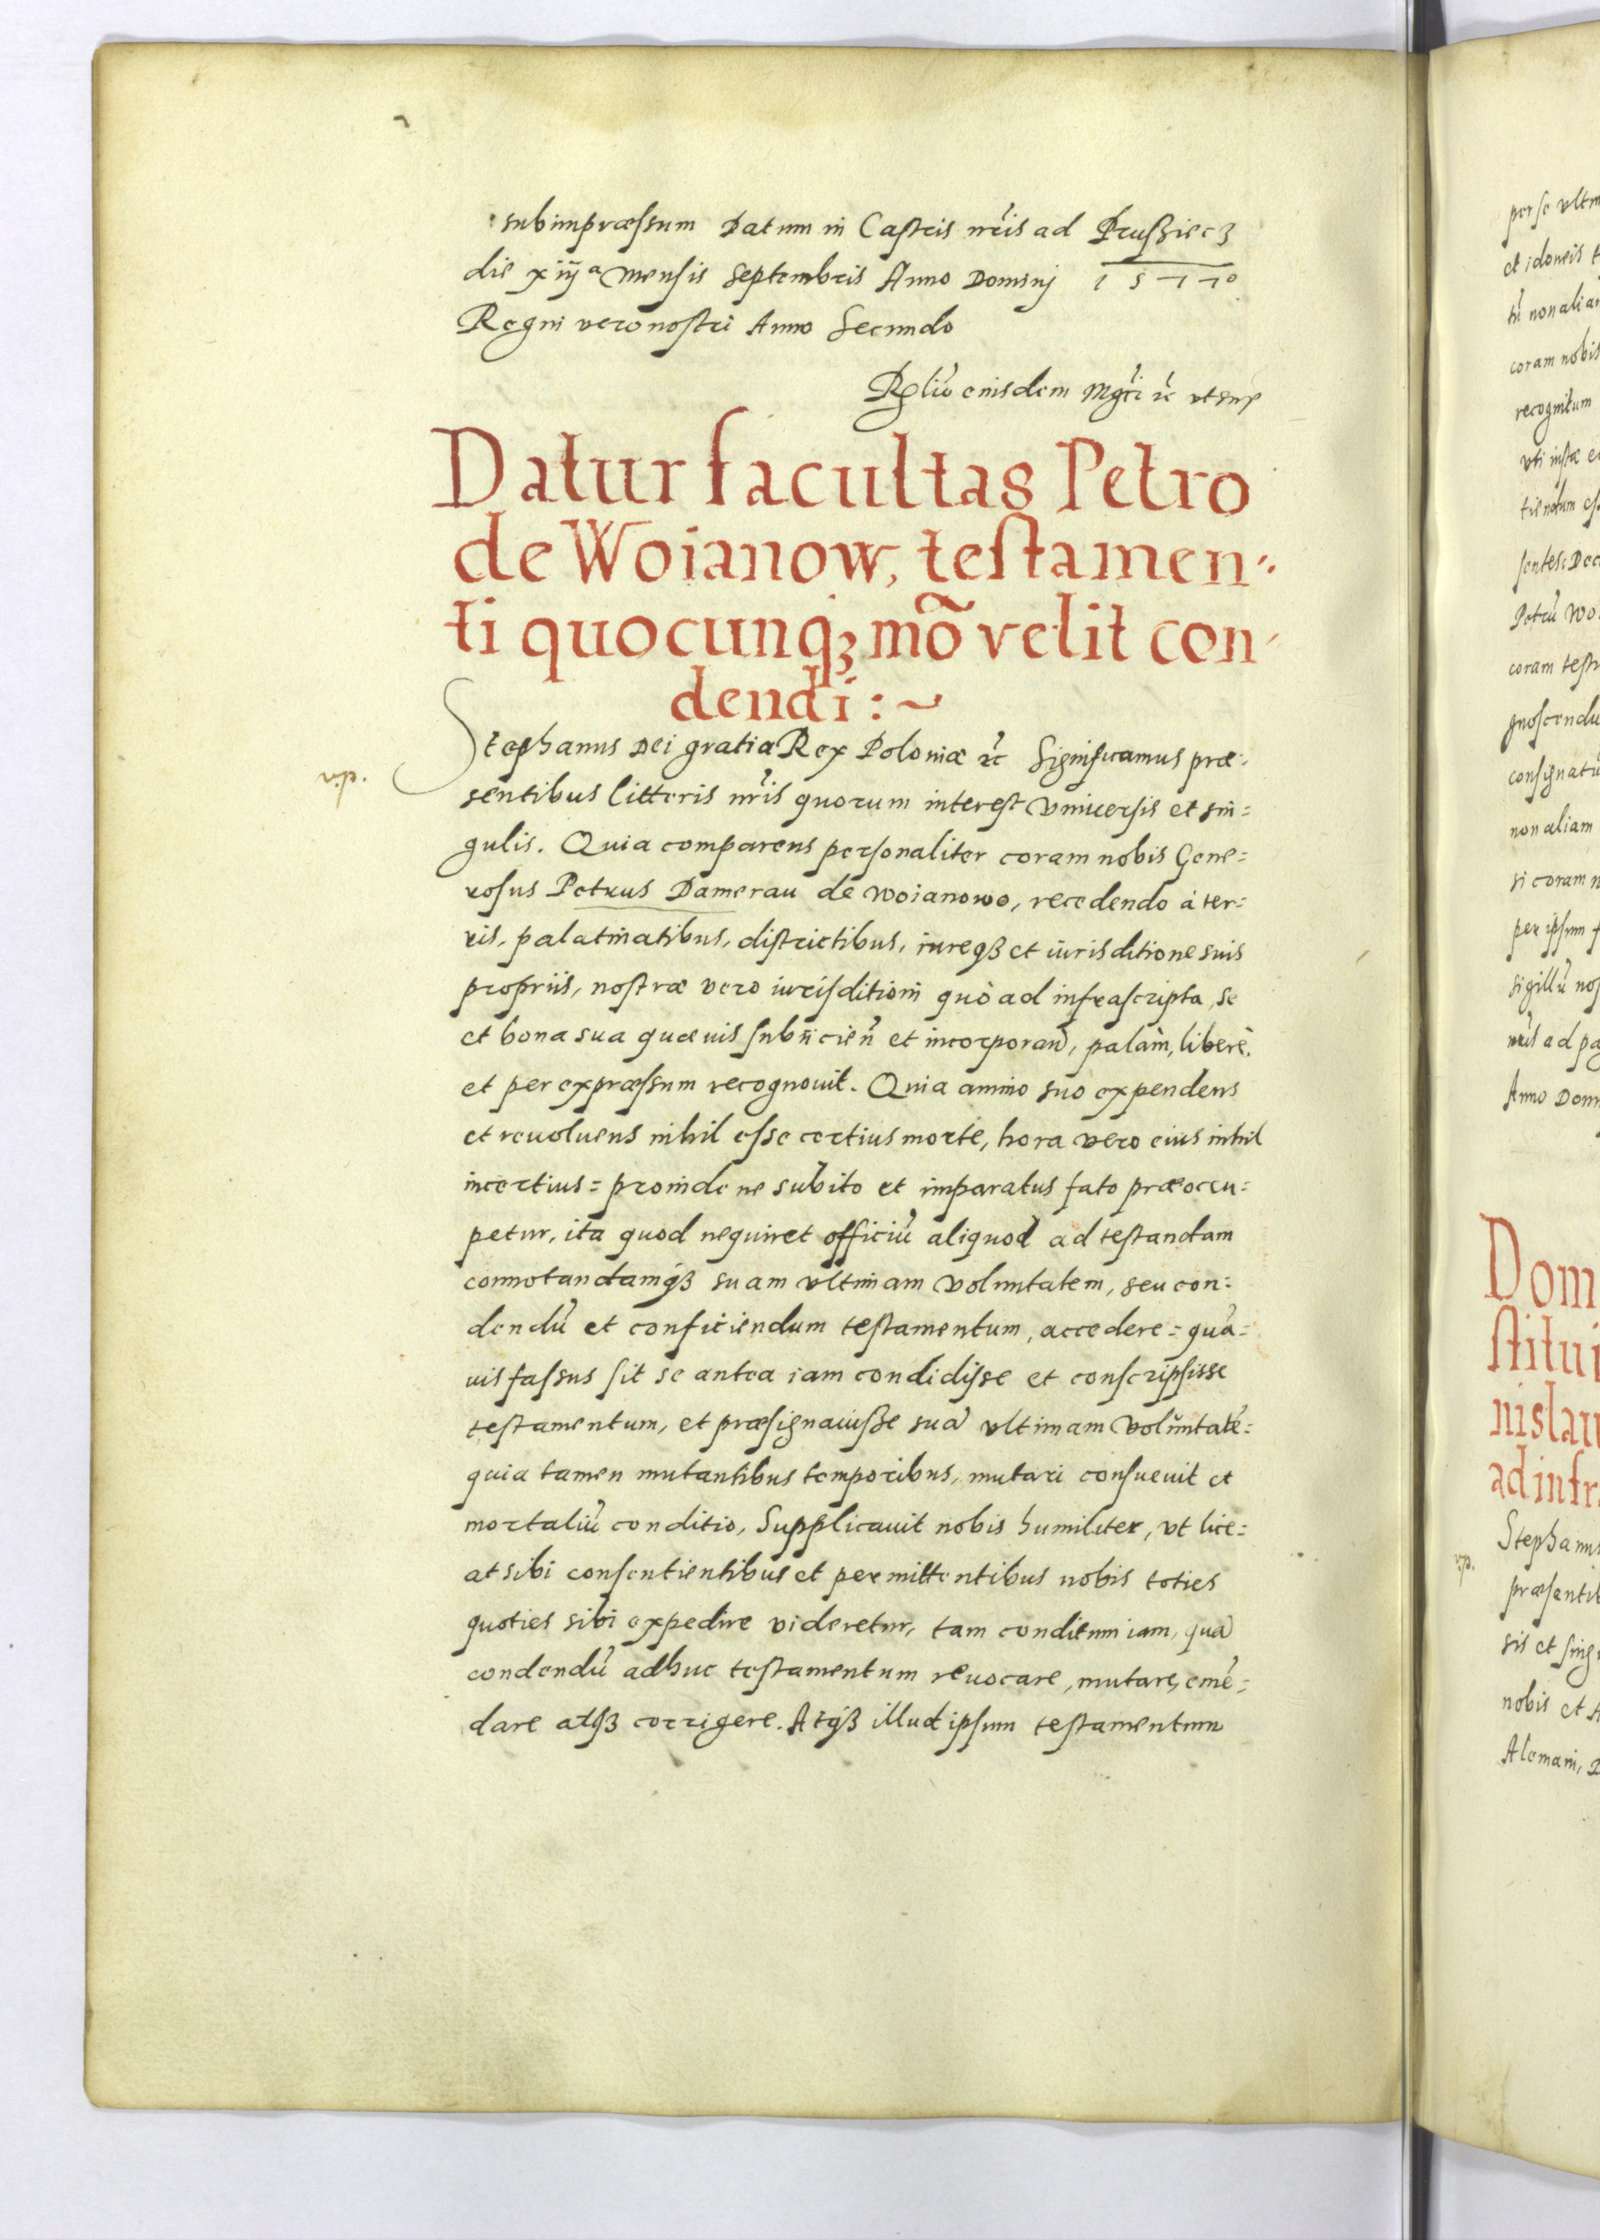 subimpræssum Datum in Castris nr̃is ad Prussziecz
die xiijᵃ Mensis Septembris Anno Domini 1577⁰
Regni vero nostri Anno Secundo
Rel̃iũ eiusdem Mgc̃i ec̃ ut sup
Datur facultas Petro
de Woianow, testamen-
ti quocunqꝫ mõ velit con-
dendi :~
Stephanus Dei gratia Rex Poloniæ ec̃ Significamus præ-
vip.
sentibus litteris nr̃is quorum interest vniuersis et sin=
gulis. Quia comparens personaliter coram nobis Gene=
rosus Petrus Damerau de Woianowo, recedendo à ter=
ris, palatinatibus, districtibus, iureqꝫ et iurisditione suis
propriis, nostræ vero iurisditioni quò ad infrascripta, se
et bona sua quæuis subiicien̄ et incorporan̄, palàm, liberè,
et per expræssum recognouit. Quia animo suo expendens
et reuoluens nihil esse certius morte, hora vero eius nihil
incertius= proinde ne subito et imparatus fato præoccu=
petur, ita quod nequiret officiũ aliquod ad testandam
connotandamqꝫ suam vltimam voluntatem, seu con=
dendũ et conficiendum testamentum, accedere= quã=
uis fassus sit se antea iam condidisse et conscripsisse
testamentum, et præsignauisse suã vltimam voluntatẽ=
quia tamen mutantibus temporibus, mutari consueuit et
mortaliũ conditio, Supplicauit nobis humiliter, vt lice=
at sibi consentientibus et permittentibus nobis toties
quoties sibi expedire videretur, tam conditum iam, quã
condendũ adhuc testamentum reuocare, mutare, emẽ=
dare atqꝫ corrigere. Atqꝫ illud ipsum testamentum
per se vltim
et idoneis t
tũ non aliam
coram nobis
recognitum
vti iustæ e
tiendum es
sentes: Dec
Petrũ Wo
coram testi
gnoscendu
consignatũ
non aliam
si coram n
per ipsum f
sigillũ nos
nr̃is ad pa
Anno Dom
Dom
stitui
nislau
ad infr
Stephanus
vp.
præsentib
sis et sing
nobis et A
Alemani, D